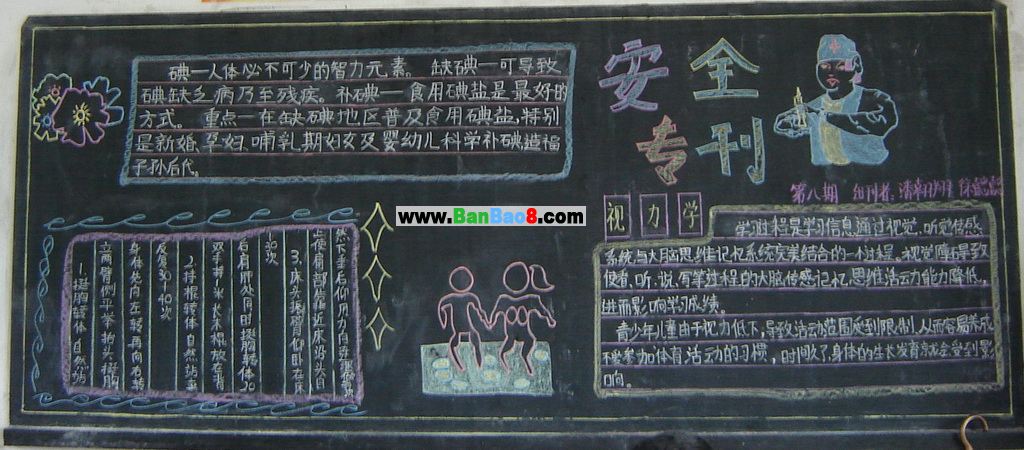 碘一人体必不可少的智力元素。缺碘一可导致
碘缺乏病乃至残疾。补碘一食用碘盐是最好的
方式。重点一在缺碘地区普及食用碘盐,特别
是新婚、孕妇、哺乳期妇女及婴幼儿科学补碘,造福
子孙后代。
安全
专刊
第八期 出刊者:
视力学
学习过程是学习信息通过视觉、听觉传感
系统与大脑思维记忆系统完美结合的一个过程。视觉障碍导致
使看、听、说、写等过程的大脑传感记忆、思维活动力能力降低,
进而影响学习成绩。
青少年儿童由于视力低下,导致活动范围受到限制,从而容易养成
不参加体育活动的习惯,时间久了,身体的生长发育就会受到影
响。
www.BanBao8.com
1.挺胸转体 自然站
立两臂侧平举 抬头 挺胸
身体先向左转 再向右转
反复30-40次
2.持棍转体 自然站立
双手持1米长木棍放在背
后肩胛处 同时挺胸转体20
-30次
3.床头挺胸 仰卧在床
上 使肩部靠近床沿 头自
然下垂后仰